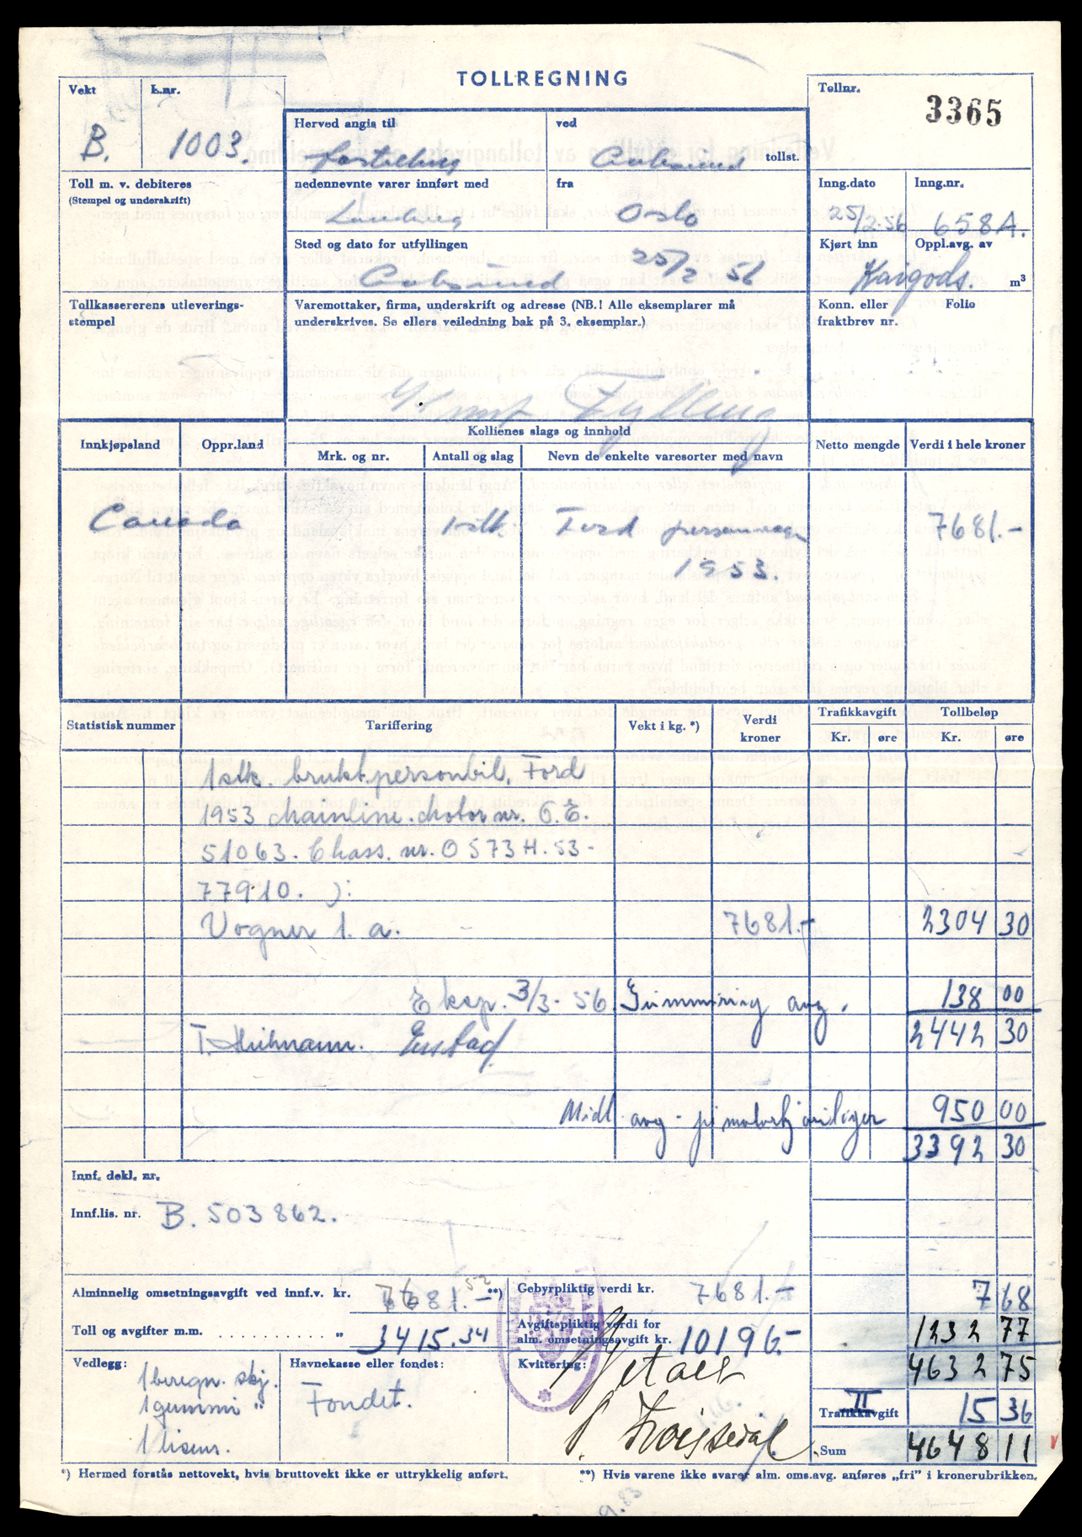 TOLLREGNING
Vekt
L.nr.
B.
1003.
Herved angis til
ved
tollst.
Tollnr.
3365
Toll m. v. debiteres
(Stempel og underskrift)
nedennevnte varer innført med
fra
Oslo
Inng.dato
25/2-56
Inng.nr.
658A.
Sted og dato for utfyllingen
25/2 56
Kjørt inn
Oppl.avg. av
Kaigods.
m³
Tollkassererens utleverings-
stempel
Varemottaker, firma, underskrift og adresse (NB.! Alle eksemplarer må
underskrives. Se ellers veiledning bak på 3. eksemplar.)
Konn. eller
fraktbrev nr.
Folio
Innkjøpsland
Oppr.land
Kollienes slags og innhold
Mrk. og nr.
Antall og slag
Nevn de enkelte varesorter med navn
Netto mengde
Verdi i hele kroner
Canada
1 stk.
Ford personvogn
7681.-
1953.
Statistisk nummer
Tariffering
Vekt i kg. *)
Verdi
kroner
Trafikkavgift
Kr. øre
Tollbeløp
Kr. øre
1 stk. brukt personbil, Ford
1953 Mainline. Motor nr. O.E.
51063. Chass. nr. O 573 H. 53-
77910. ):
Vogner 1. a.
7681.-
2304 30
Eksp. 3/3-56.
Gummiring avg.
138 00
2442 30
Midl. avg. p. motorkjøretøyer
950 00
3392 30
Innf. dekl. nr.
Innf.lis. nr. B. 503862.
Alminnelig omsetningsavgift ved innf.v. kr.
**)
Gebyrpliktig verdi kr. 7681.-
7 68
Toll og avgifter m.m. . . . . . . . . . . . „ 3415.34
Avgiftspliktig verdi for
alm. omsetningsavgift kr. 10196.-
1232 77
4632 75
Vedlegg:
1 beregn. skj.
1 gummi "
1 lisens.
Havnekasse eller fondet:
Fondet.
Kvittering:
Trafikkavgift
15 36
Sum
4648 11
*) Hermed forstås nettovekt, hvis bruttovekt ikke er uttrykkelig anført.
**) Hvis varene ikke svarer alm. oms.avg. anføres „fri” i kronerubrikken.